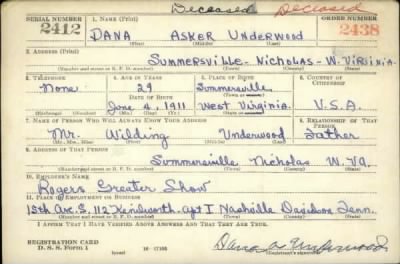 Deceased Deceased
SERIAL NUMBER 1. NAME (Print) ORDER NUMBER
2412 DANA ASKER UNDERWOOD 2438
(First) (Middle) (Last)
2. ADDRESS (Print)
SUMMERSVILLE - NICHOLAS - W. VIRGINIA
(Number and street or R. F. D. number) (Town) (County) (State)
3. TELEPHONE 4. AGE IN YEARS 5. PLACE OF BIRTH 6. COUNTRY OF CITIZENSHIP
None 29 Summersville
DATE OF BIRTH (Town or county)
June 4, 1911 West Virginia U.S.A.
(Exchange) (Number) (Mo.) (Day) (Yr.) (State or country)
7. NAME OF PERSON WHO WILL ALWAYS KNOW YOUR ADDRESS 8. RELATIONSHIP OF THAT PERSON
Mr. Wilding Underwood Father
(Mr., Mrs., Miss) (First) (Middle) (Last)
9. ADDRESS OF THAT PERSON
Summersville Nicholas W. Va.
(Number and street or R. F. D. number) (Town) (County) (State)
10. EMPLOYER'S NAME
Rogers Greater Show
11. PLACE OF EMPLOYMENT OR BUSINESS
15th Ave. S. 112 Kenilworth - apt I Nashville Davidson Tenn.
(Number and street or R. F. D. number) (Town) (County) (State)
I AFFIRM THAT I HAVE VERIFIED ABOVE ANSWERS AND THAT THEY ARE TRUE.
REGISTRATION CARD
D. S. S. Form 1 (over) Dana A. Underwood
(Registrant's signature)